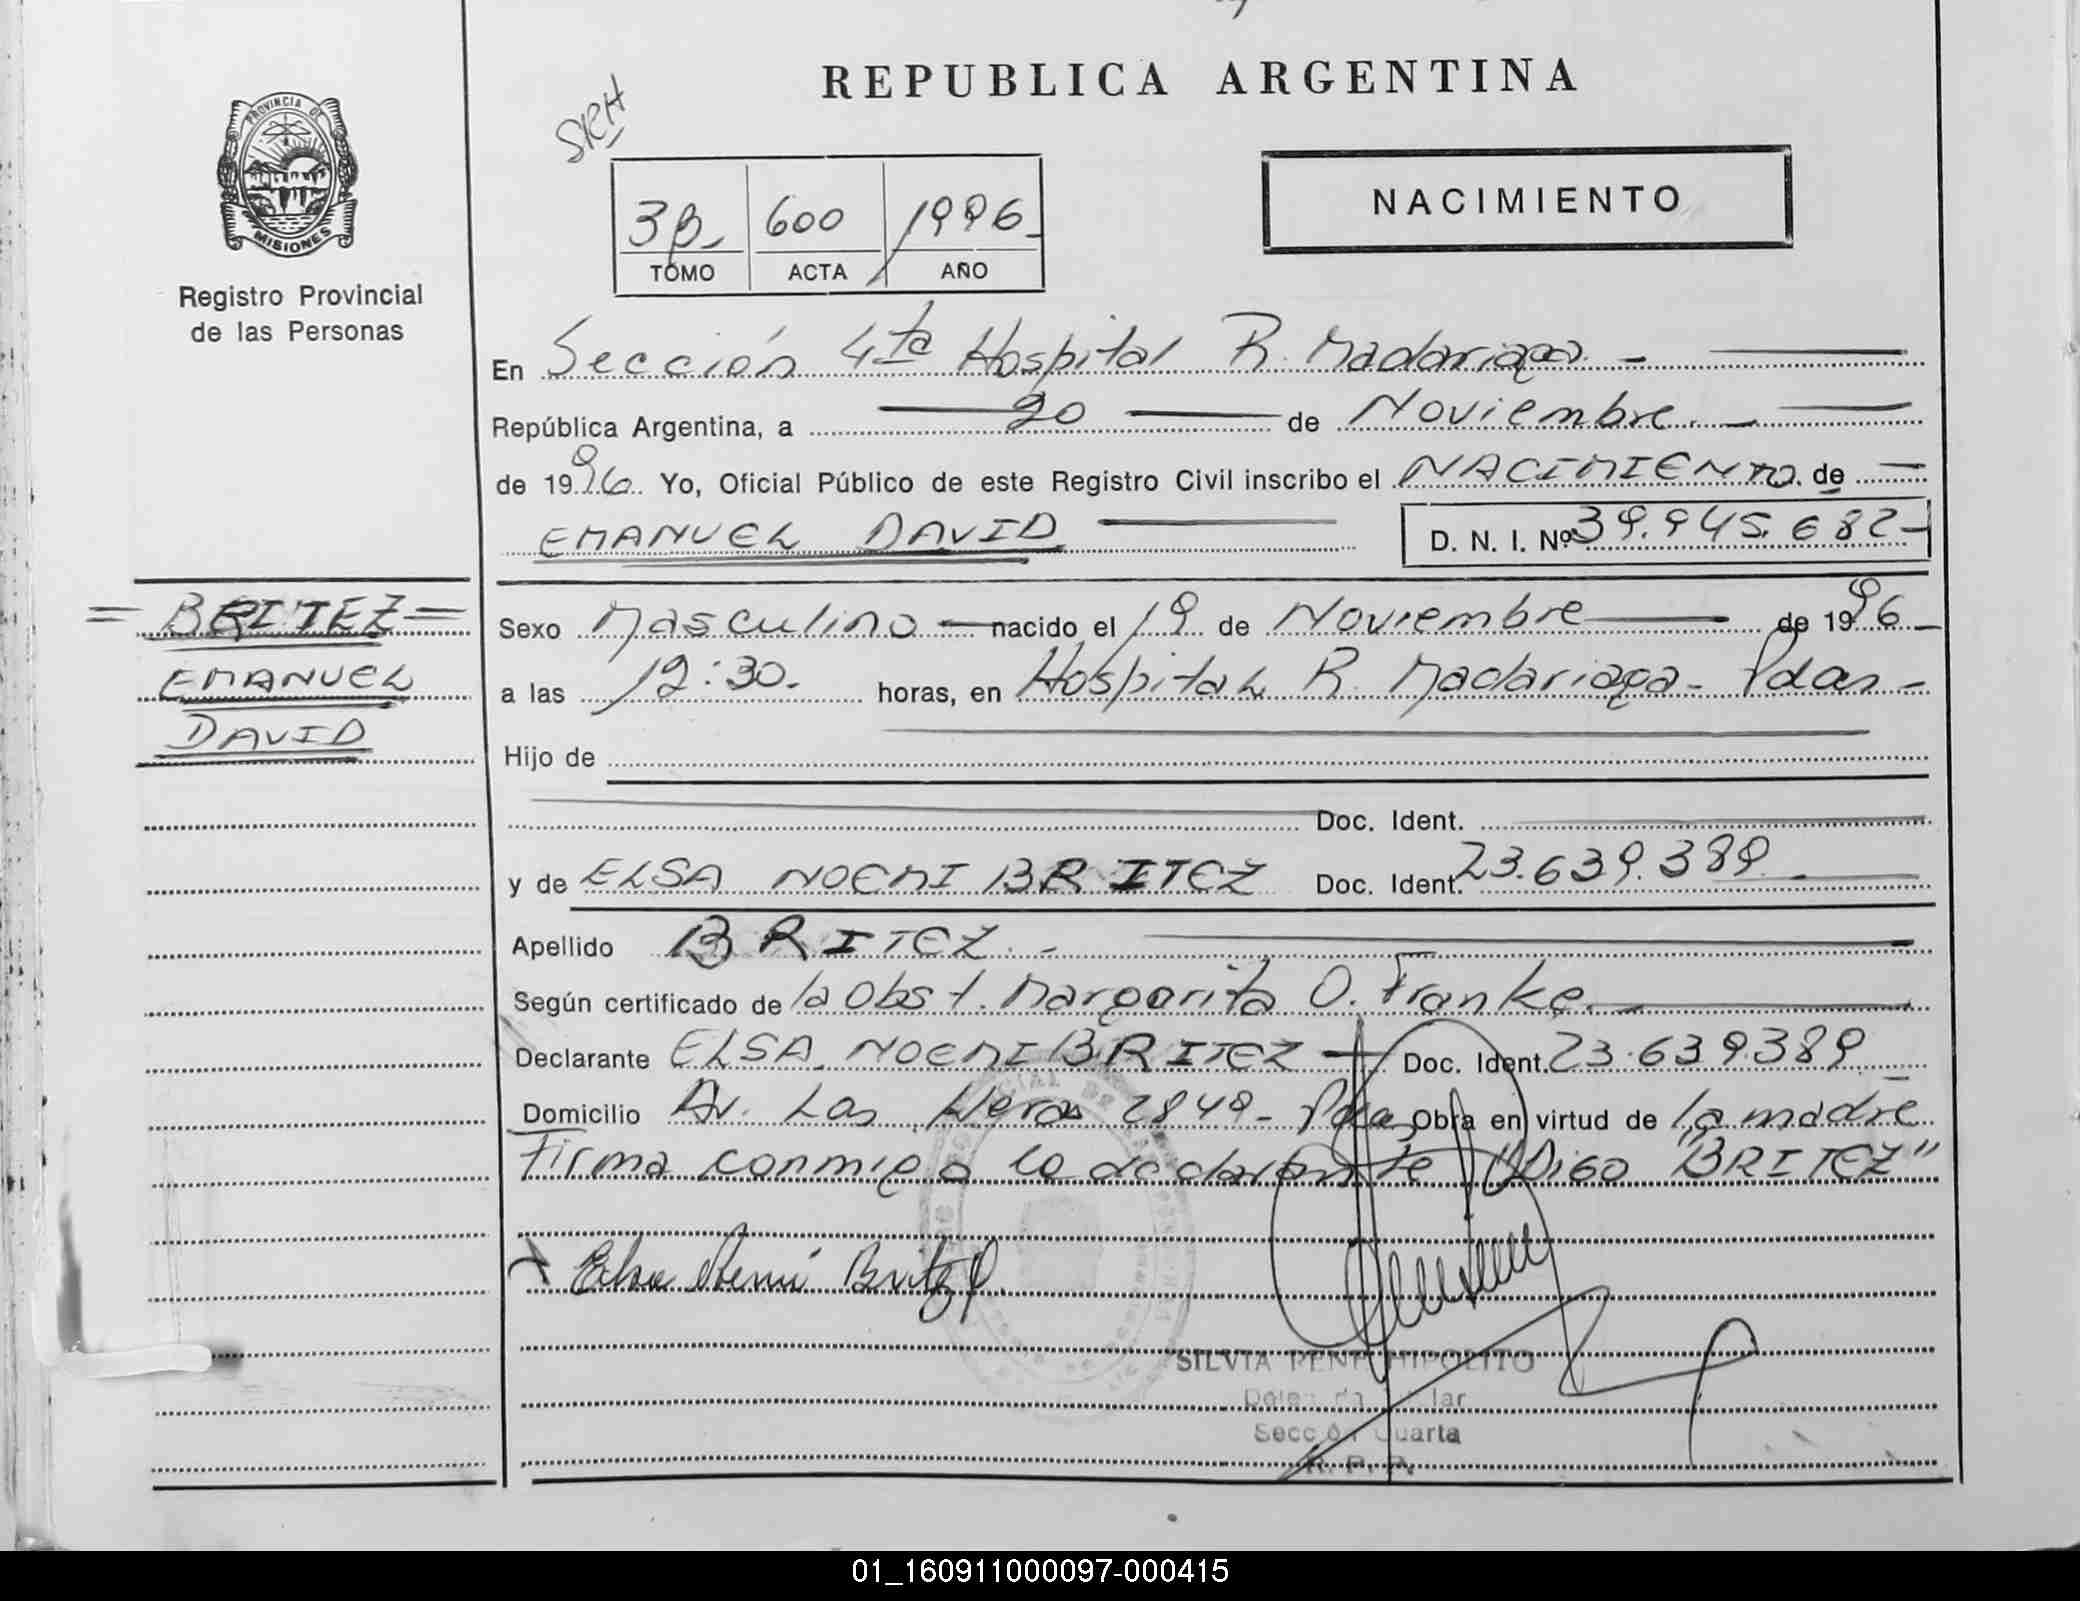 REPUBLICA ARGENTINA
SRH
PROVINCIA DE
MISIONES
Registro Provincial
de las Personas
3B 600 1996
TOMO ACTA AÑO
NACIMIENTO
En Sección 4ta Hospital R. Madariaga. -
República Argentina, a 20 de Noviembre. -
de 1996. Yo, Oficial Público de este Registro Civil inscribo el NACIMIENTO. de
EMANUEL DAVID
D. N. I. Nº 39.945.682-
= BRITEZ =
EMANUEL
DAVID
Sexo Masculino nacido el 19 de Noviembre de 1996 -
a las 12:30. horas, en Hospital R. Madariaga - Pdas -
Hijo de
Doc. Ident.
y de ELSA NOEMI BRITEZ Doc. Ident. 23.639.389.
Apellido BRITEZ. -
Según certificado de la Obst. Margarita O. Franke. -
Declarante ELSA NOEMI BRITEZ Doc. Ident. 23.639.389 -
Domicilio Av. Las Heras 2849 - Pdas Obra en virtud de la madre
Firma conmigo la declarante "Digo "BRITEZ"
Elsa Noemi Britez
SILVIA RENE HIPOLITO
Sección Cuarta
R. P. P.
01_160911000097-000415